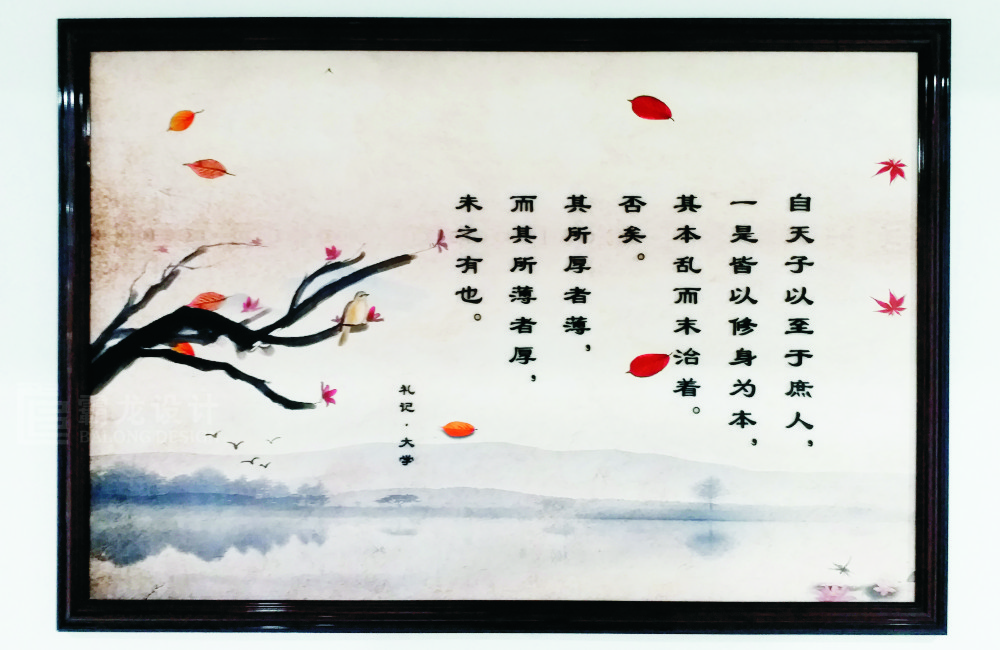 自天子以至于庶人，
一是皆以修身为本，
其本乱而末治着。
否矣。
其所厚者薄，
而其所薄者厚，
未之有也。
礼记·大学
霸龙设计
BALONG DESIGN